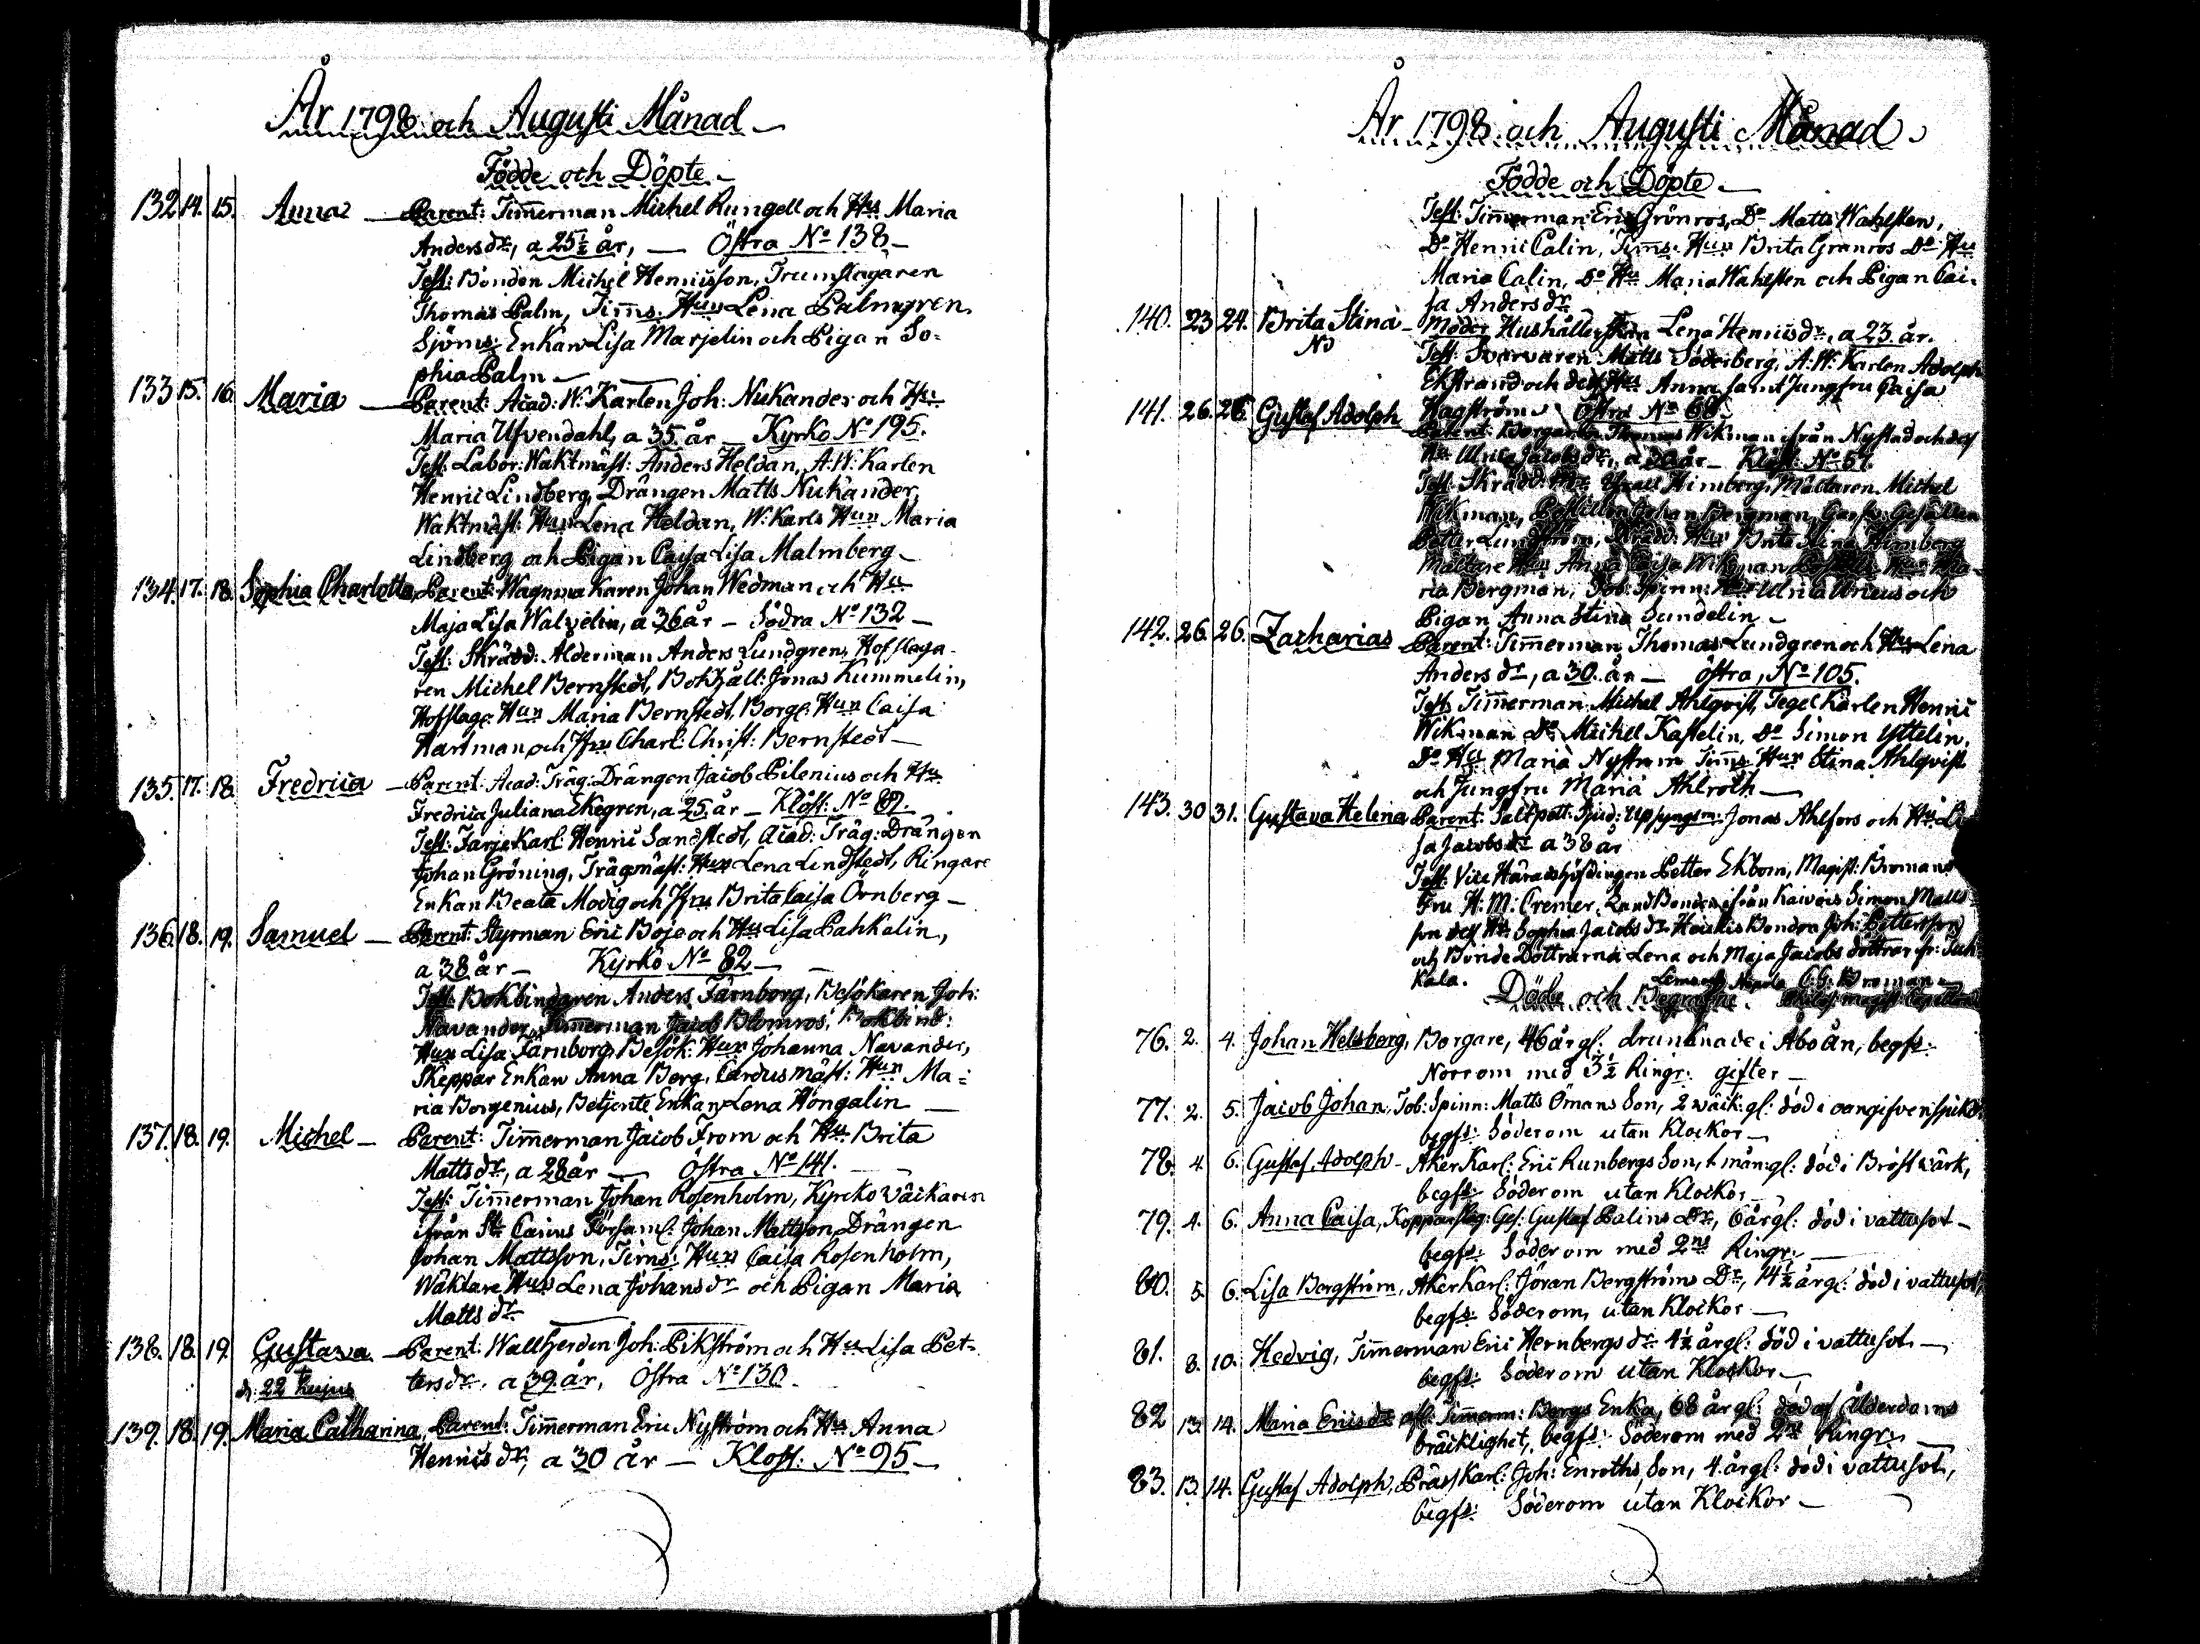 År 1798 och Augusti Månad
Födde och Döpte
132 14. 15. Anna Parent: Timmerman Michel Rungell och Hu: Maria
Andersdr, a 25½ år, — Östra No 138 —
Test: Bonden Michel Henricsson, Trumslagaren
Thomas Palm, Timms: Hun Lena Palmgren,
Sjöms: Enkan Lisa Marjelin och Pigan So-
phia Palm —
133 15. 16. Maria — Parent: Acad: W: Karlen Joh: Nukander och Hu:
Maria Ufvendahl, a 35 år — Kyrko No 195.
Test: Labor: Waktmäst: Anders Heldan, A: W: Karlen
Henric Lindberg, Drängen Matts Nukander,
Waktmäst: Hun Lena Heldan, W: Karls Hun Maria
Lindberg och Pigan Caisa Lisa Malmberg —
134. 17. 18. Sophia Charlotta, Parent: Wagnmakaren Johan Wedman och Hu
Maja Lisa Walvelin, a 36 år — Södra No 132 —
Test: Skrädd: Alderman Anders Lundgren, Hofslaga-
ren Michel Bernstedt, Bokhåll: Jonas Kummelin,
Hofslag: Hun Maria Bernstedt, Borg: Hun Caisa
Hartman och Jfru Charl: Christ: Bernstedt —
135. 17. 18. Fredrica — Parent: Acad: Träg: Drängen Jacob Pilenius och Hu
Fredrica Juliana Ekegren, a 25 år — Klost: No 82.
Test: Färjekarl: Henric Sandstedt, Acad: Träg: Drängen
Johan Gröning, Trägmäst: Hun Lena Lindstedt, Ringare
Enkan Beata Modig och Jfru Brita Caisa Örnberg —
136. 18. 19. Samuel — Parent: Styrman Eric Boje och Hu Lisa Pahkalin,
a 38 år — Kyrko No 82 —
Test: Bokbindaren Anders Färnborg, Besökaren Joh:
Navander, Timmerman Jacob Blomros, Bokbind:
Hun Lisa Färnborg, Besök: Hun Johanna Navander,
Skeppar Enkan Anna Berg, Cardusmäst: Hun Ma-
ria Borgenius, Betjente Enkan Lena Hongalin —
137. 18. 19. Michel — Parent: Timmerman Jacob From och Hu Brita
Mattsdr, a 28 år — Östra No 141.
Test: Timmerman Johan Rosenholm, Kyrkoväckaren
ifrån St Carins Församl: Johan Mattsson, Drängen
Johan Mattsson, Tims: Hun Caisa Rosenholm,
Waktare Hun Lena Johansdr och Pigan Maria
Mattsdr
138. 18. 19. Gustava — Parent: Wallherden Joh: Pikström och Hu Lisa Pet-
d: 22 hujus tersdr, a 39 år, Östra No 130.
139. 18. 19. Maria Catharina, Parent: Timmerman Eric Nyström och Hu Anna
Henricsdr, a 30 år — Klost: No 95 —
År 1798 och Augusti Månad
Födde och Döpte —
Test: Timmerman Eric Grönros, Do Matts Wahlsten,
Do Henric Calin, Tims: Hun Brita Grönros Do Hu
Maria Calin, Do Hu Maria Wahlsten och Pigan Cai-
sa Andersdr
140. 23 24. Brita Stina — Moder Hushållerskan Lena Henricsdr, a 23 år.
No Test: Svarvaren Matts Söderberg, A: W: Karlen Adolph
Ekstrand och dess Hu Anna samt Jungfru Caisa
Hagström — Östra No 68.
141. 26. 26. Gustaf Adolph Parent: Borgaren Thomas Wikman ifrån Nystad och dess
Hu Ulrica Jacobsdr, a 30 år — Klost: No 51.
Test: Skrädd: Himberg, Mältaren Michel
Wikman, Johan Bergman,
Petter Lundström, Skrädd: Hun Brita Stina Himberg
Mältare Hun Anna Caisa Wikman Ma-
ria Bergman, Tob: Spinn: Hun Ulrica och
Pigan Anna Stina Sundelin —
142. 26. 26. Zacharias Parent: Timmerman Thomas Lundgren och Hu Lena
Andersdr, a 30 år — Östra, No 105.
Test: Timmerman Michel Ahlqvist, Tegelkarlen Henric
Wikman Do Michel Kastelin, Do Simon Yttelin,
Do Hu Maria Nyström Timms Hun Stina Ahlqvist
och Jungfru Maria Ahlroth —
143. 30 31. Gustava Helena Parent: Saltpett: Sjud: Upsyngsm: Jonas Ahlfors och Hu Li
sa Jacobsdr a 38 år
Test: Vice Häradshöfdingen Petter Ekbom, Magist: Bromans
Fru H: M: Cremer, Landbonden ifrån Kaivois Simon Matts
son dess Hu: Sophia Jacobsdr Heickis Bondra Joh: Pettersson
och Bonde Döttrarna Lena och Maja Jacobs döttrar fr:
kala. Lemo och Nipola C: G: Broman
Döde och Begrafne.
76. 2. 4. Johan Helsberg, Borgare, 46 år gl: drunknade i Åbo ån, begfs:
Norrom med 3½ Ringr: gifter —
77. 2. 5. Jacob Johan, Tob: Spinn: Matts Ömans Son, 2 wäck: gl: död i oangifven sjukd:
begfs: Söderom utan Klockor —
78. 4. 6. Gustaf Adolph — Åkerkarl: Eric Runbergs Son, 1 mån: gl: död i Bröstwärk,
begfs: Söderom utan Klockor —
79. 4. 6. Anna Caisa, Kopparslag: Ges: Gustaf Palins Dr, 6 år gl: död i vattusot —
begfs: Söderom med 2ne Ringr: —
80. 5. 6. Lisa Bergström, Åkerkarl: Jöran Bergströms Dr, 14½ år gl: död i vattusot,
begfs: Söderom, utan Klockor —
81. 8. 10. Hedvig, Timmerman Eric Hernbergs dr 4½ år gl: död i vattusot. —
begfs: Söderom utan Klockor —
82 13. 14. Maria Ericsdr afl: Timmerm: Bergs Enka, 68 år gl: död af Ålderdoms
bräcklighet, begfs: Söderom med 2ne Ringr: —
83. 13. 14. Gustaf Adolph, Präs: Karl: Joh: Enroths Son, 4 år gl: död i vattusot,
begfs: Söderom utan Klockor —